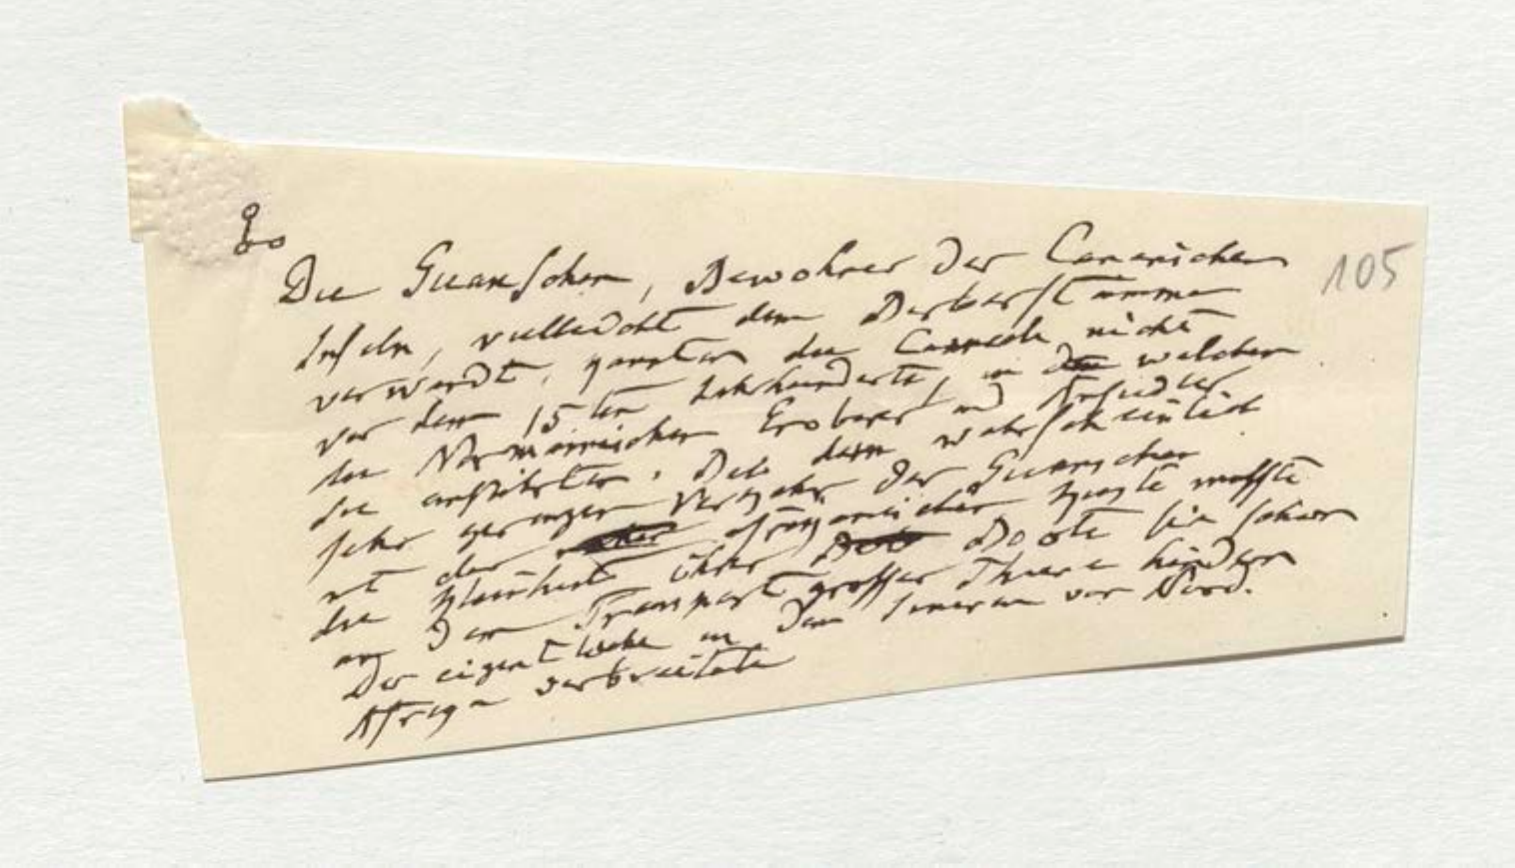 105
Die Guanschen, Bewohner der Canarischen
Inseln, vielleicht dem Berberstamme
verwandt, kannten die Cameele nicht
vor dem 15ten Jahrhunderte, in welchem
die Normännischen Eroberer und Ansiedler
sie einführten. Bei dem wahrscheinlich
sehr geringen Verkehr der Guanschen
mit der afrikanischen Küste musste
die Kleinheit ihrer Boote sie schon
an dem Transport grosser Thiere hindern
Der eigentliche in dem Inneren von Nord.
Afrika verbreitete